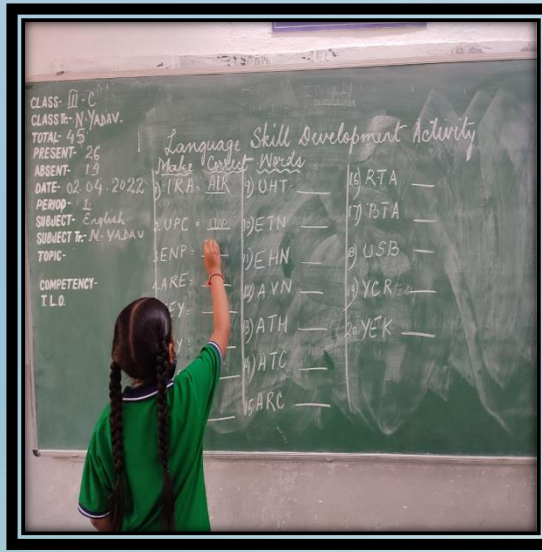 CLASS- III - C
CLASS Tr:- N. YADAV.
TOTAL- 45
PRESENT- 26
ABSENT- 19
DATE- 02.04.2022
PERIOD- 1
SUBJECT- English
SUBJECT Tr:- N. YADAV
TOPIC-
COMPETENCY-
T.L.O.
Language Skill Development Activity
Make Correct Words
1) IRA AIR
2. UPC = CUP
3. ENP =
4. ARE =
EY=
9) UHT-
10) ETN
11) EHN
12) AVN
13) ATH
14) ATC
15. ARC
16) RTA
17) BTA
18) USB
19) YCR
20. YEK